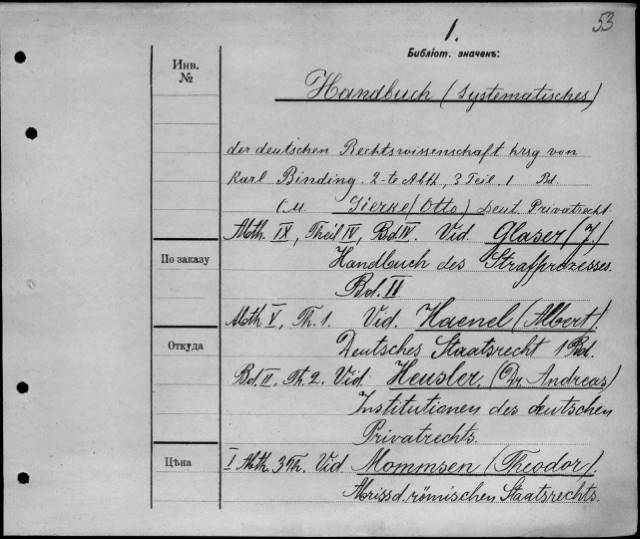 53
1.
Библiот. значекъ:
Инв.
№
Handbuch (Systematisches)
der deutschen Rechtswissenschaft hrsg von
Karl Binding. 2-te Abth, 3 Teil. 1 Bd.
См. Gierke (Otto) Deut. Privatrecht
Abth. IX, Theil IV, Bd IV. Vid. Glaser (J.)
По заказу
Handbuch des Strafprozesses.
Bd. II
Abth V, Th. 1. Vid. Haenel (Albert).
Откуда
Deutsches Staatsrecht 1 Bd.
Bd. II. Th. 2. Vid. Heusler, (Dr. Andreas)
Institutionen des deutschen
Privatrechts.
Цѣна
I Abth. 3 Th. Vid Mommsen (Theodor).
Abriss d. römischen Staatsrechts.